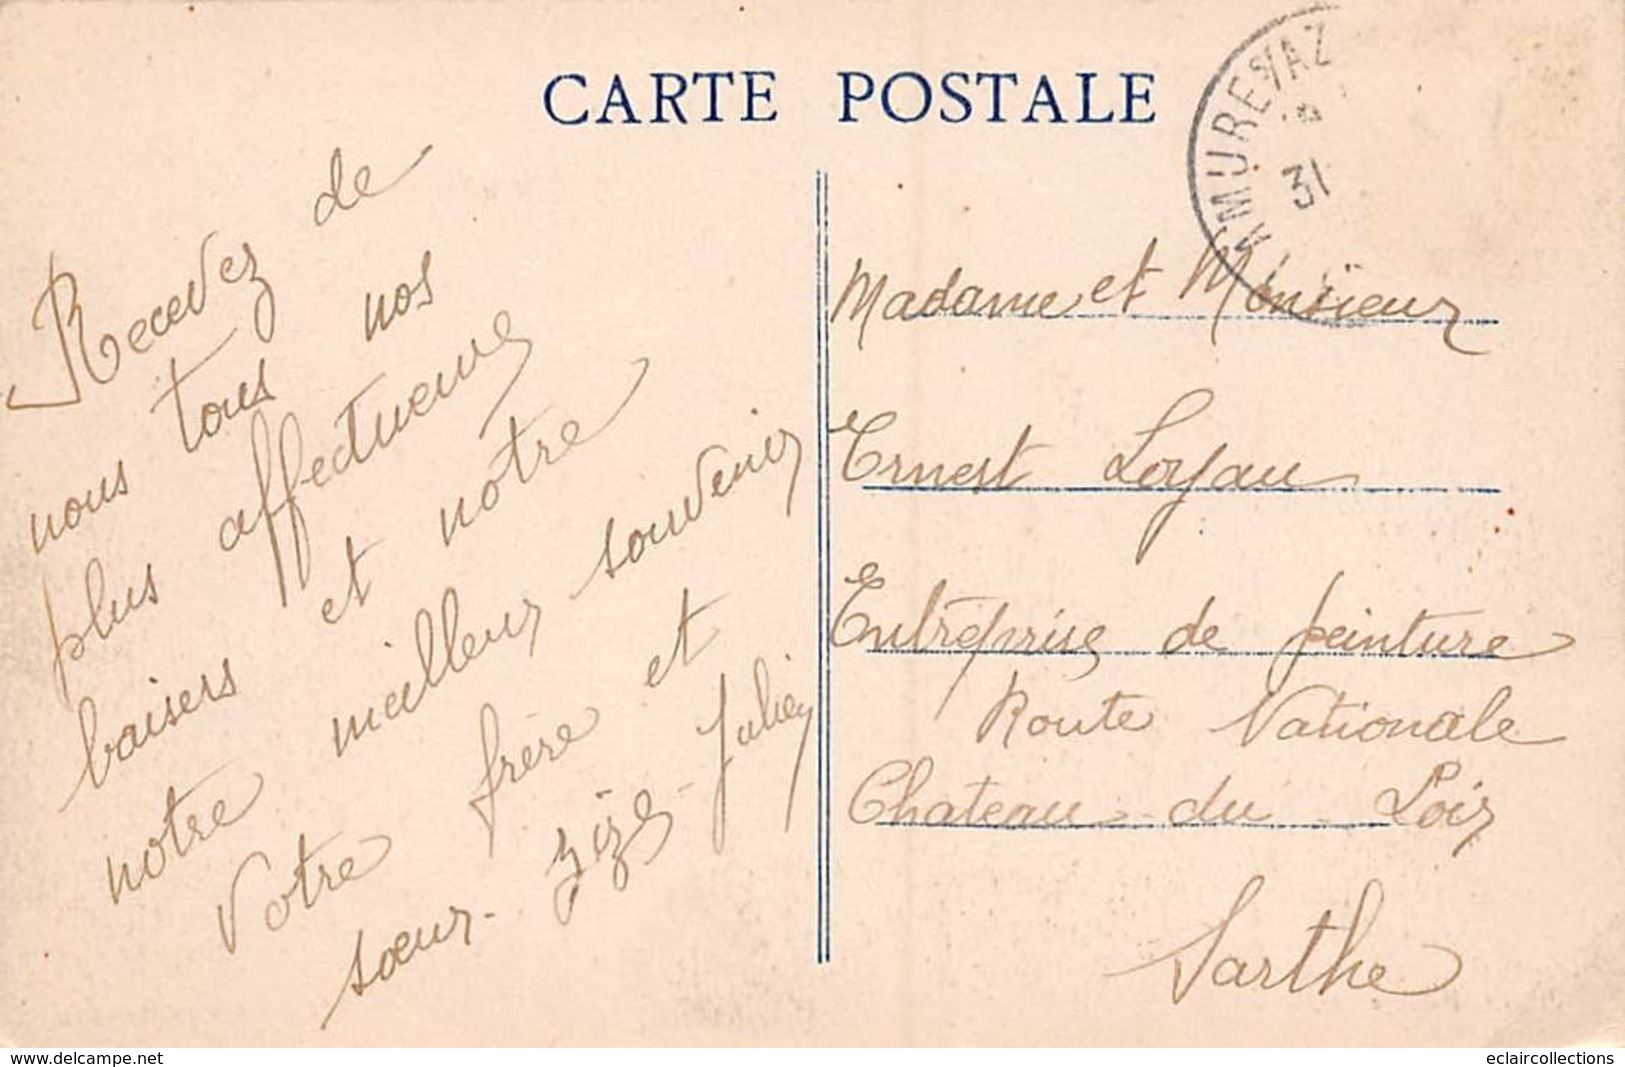 CARTE POSTALE
MUREVAZ
31
Recevez de
nous tous nos
plus affectueux
baisers et notre
notre meilleur souvenir
Votre frère et
sœur - Zize - Julien
Madame et Monsieur
Ernest Loyau
Entreprise de peinture
Route Nationale
Chateau - du - Loir
Sarthe
www.delcampe.net
eclaircollections